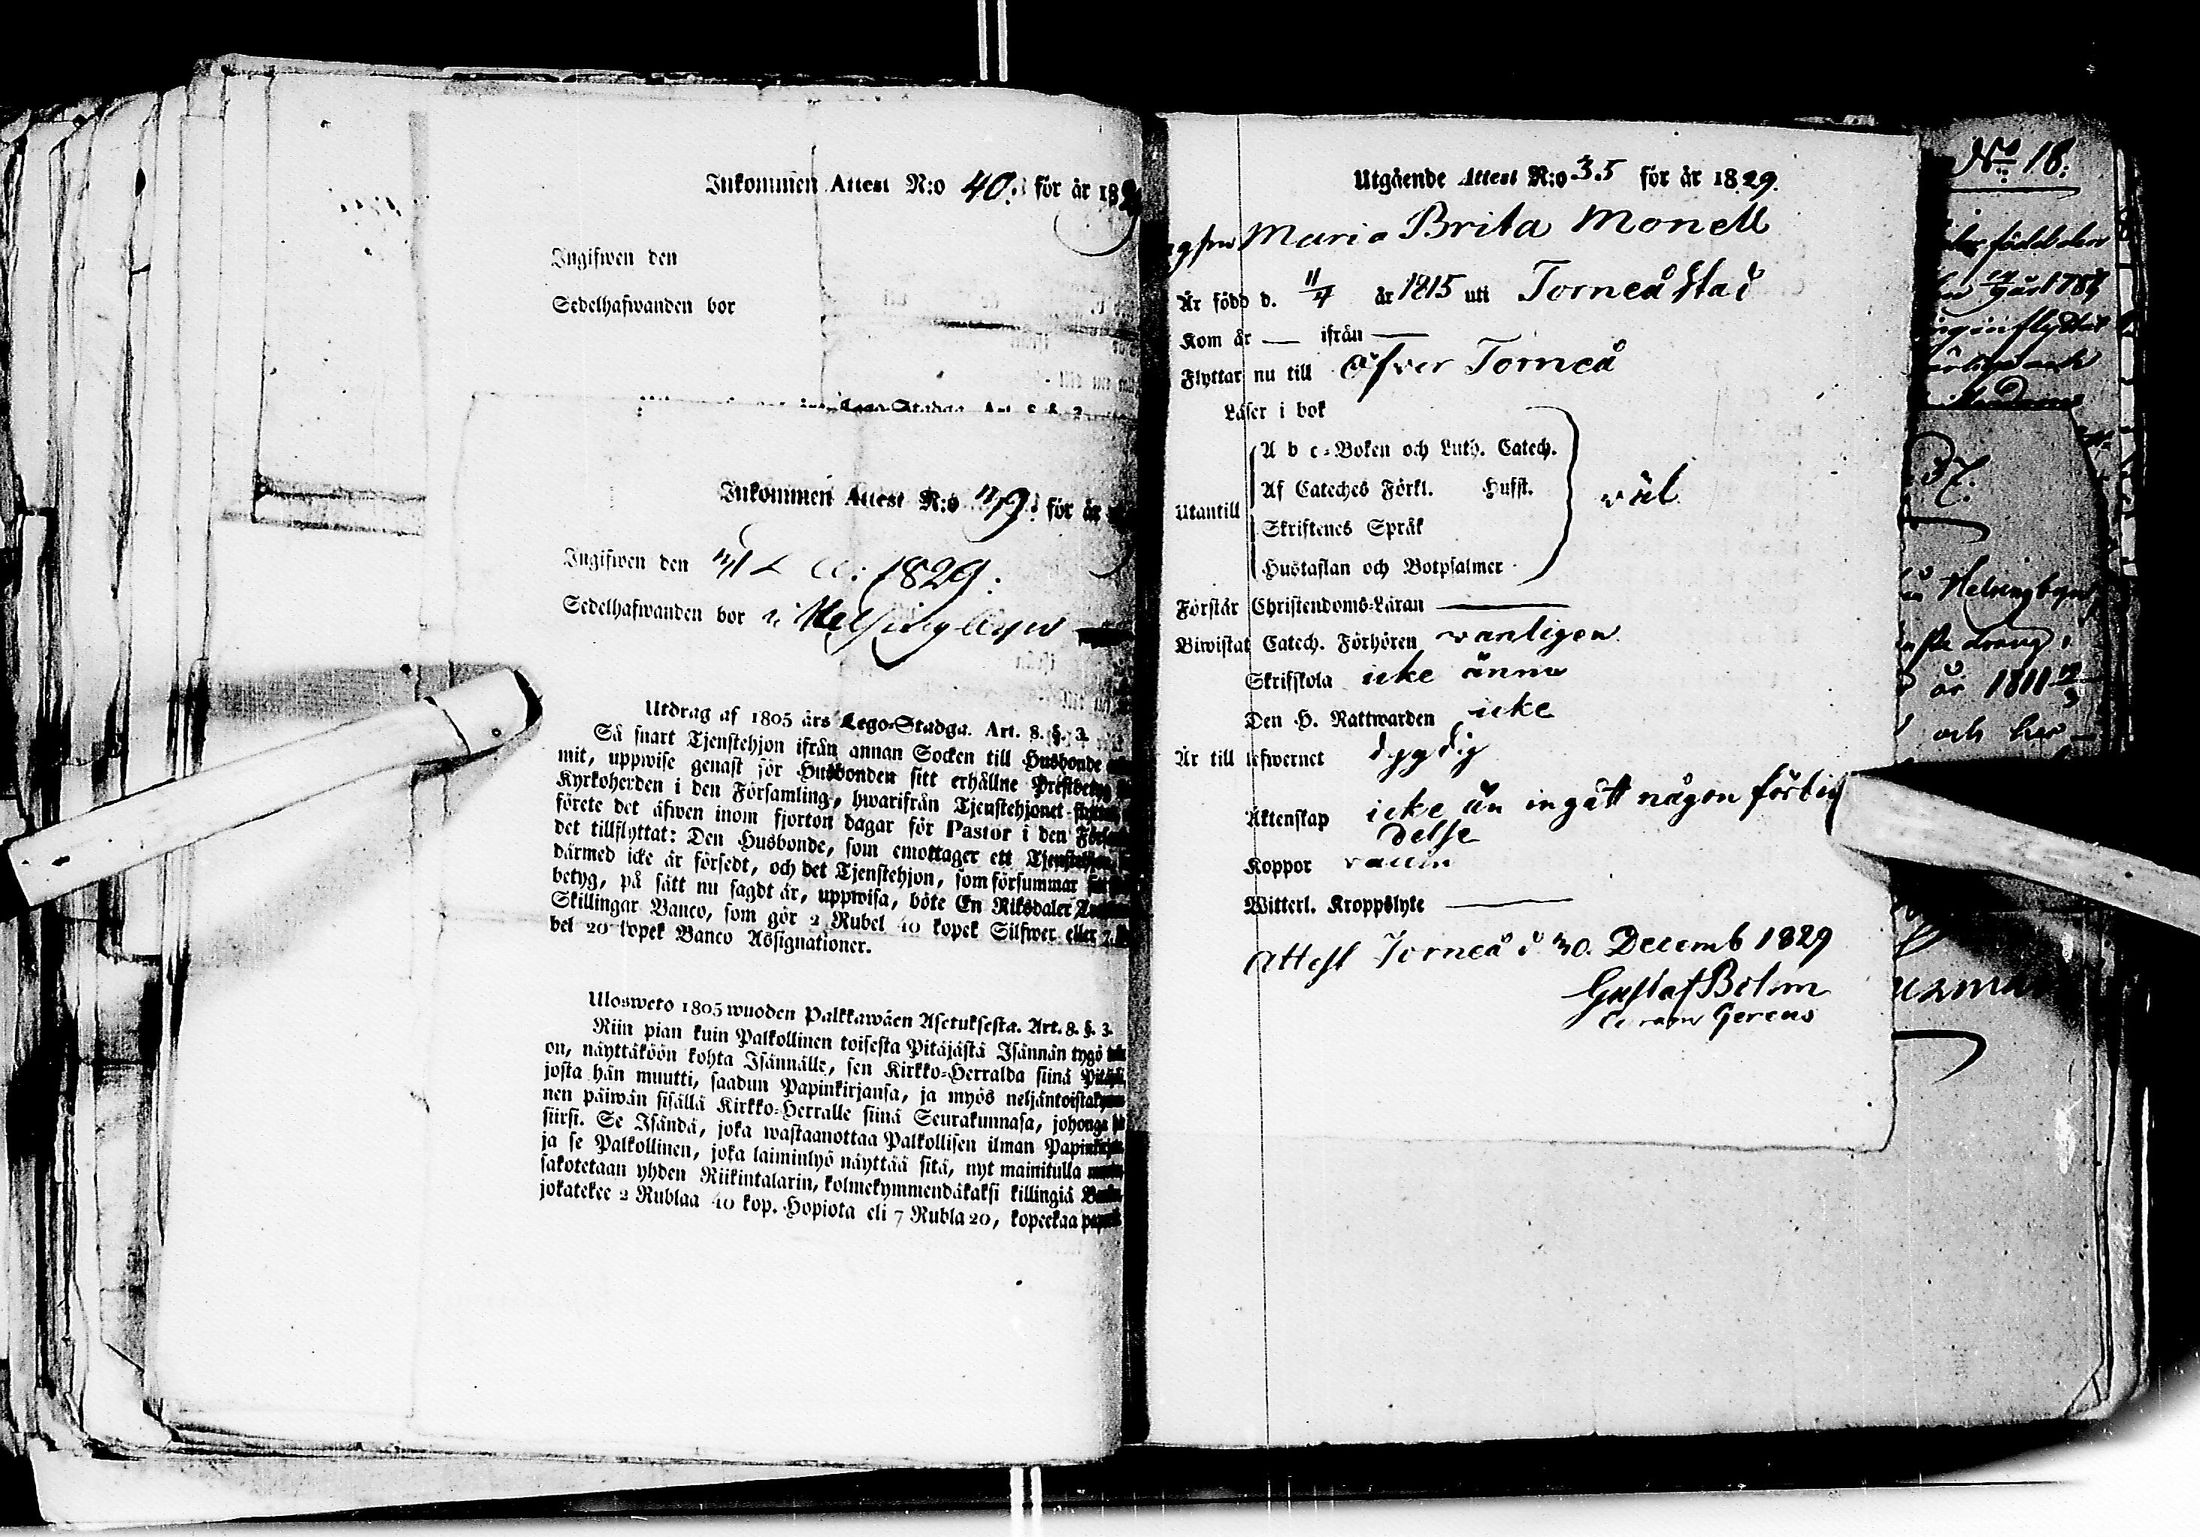 Inkommen Attest N:o 40. för år 18
Ingifwen den
Sedelhafwanden bor
Lego-Stadga Art. 8. §. 3.
Inkommen Attest N:o för år
Ingifwen den 1829.
Sedelhafwanden bor i Helsingbyn
Utdrag af 1805 års Lego-Stadga. Art. 8. §. 3.
Så snart Tjenstehjon ifrån annan Socken till Husbonde
mit, uppwise genast för Husbonden sitt erhållne Prestbetyg
Kyrkoherden i den Församling, hwarifrån Tjenstehjonet
förete det äfwen inom fjorton dagar för Pastor i den
det tillflyttat: Den Husbonde, som emottager ett Tjenstehjon,
därmed icke är försedt, och det Tjenstehjon, som försummar
betyg, på sätt nu sagdt är, uppwisa, böte En Riksdaler
Skillingar Banco, som gör 2 Rubel 40 kopek Silfwer eller 7
bel 20 kopek Banco Assignationer.
Ulosweto 1805 wuoden Palkkawäen Asetuksesta. Art. 8. §. 3.
Niin pian kuin Palkollinen toisesta Pitäjästä Isännän tygö
on, näyttäköön kohta Isännälle, sen Kirkko-Herralda siinä
josta hän muutti, saadun Papinkirjansa, ja myös
nen päiwän sisällä Kirkko-Herralle siinä Seurakunnasa, johonga
siirsi. Se Isändä, joka wastaanottaa Palkollisen ilman
ja se Palkollinen, joka laiminlyö näyttää sitä, nyt mainitulla
sakotetaan yhden Riikintalarin, kolmekymmendäkaksi killingiä
jokatekee 2 Rublaa 40 kop. Hopiota eli 7 Rubla 20, kopeekaa
Utgående Attest N:o 35 för år 1829.
Maria Brita Monell
Är född d. 11/4 år 1815 uti Torneå Stad
Kom år — ifrån —
Flyttar nu till Öfver Torneå
Läser i bok
A b c-Boken och Luth. Catech.
Af Cateches Förkl. Hufst.
Utantill
väl
Skriftenes Språk
Hustaflan och Botpsalmer
Förstår Christendoms-Läran —
Biwistat Catech. Förhören vanligen
Skrifskola icke ännu
Den H. Nattwarden icke
Är till lefwernet dygdig
Äktenskap icke än ingått någon förbin
delse
Koppor vaccin
Witterl. Kroppslyte —
Attest Torneå d 30. Decemb 1829
Gustaf Bolm
Gerens
No 18.
född den
år 178
inflyttat
37.
Helsingbyn
dräng
år 1811
och her